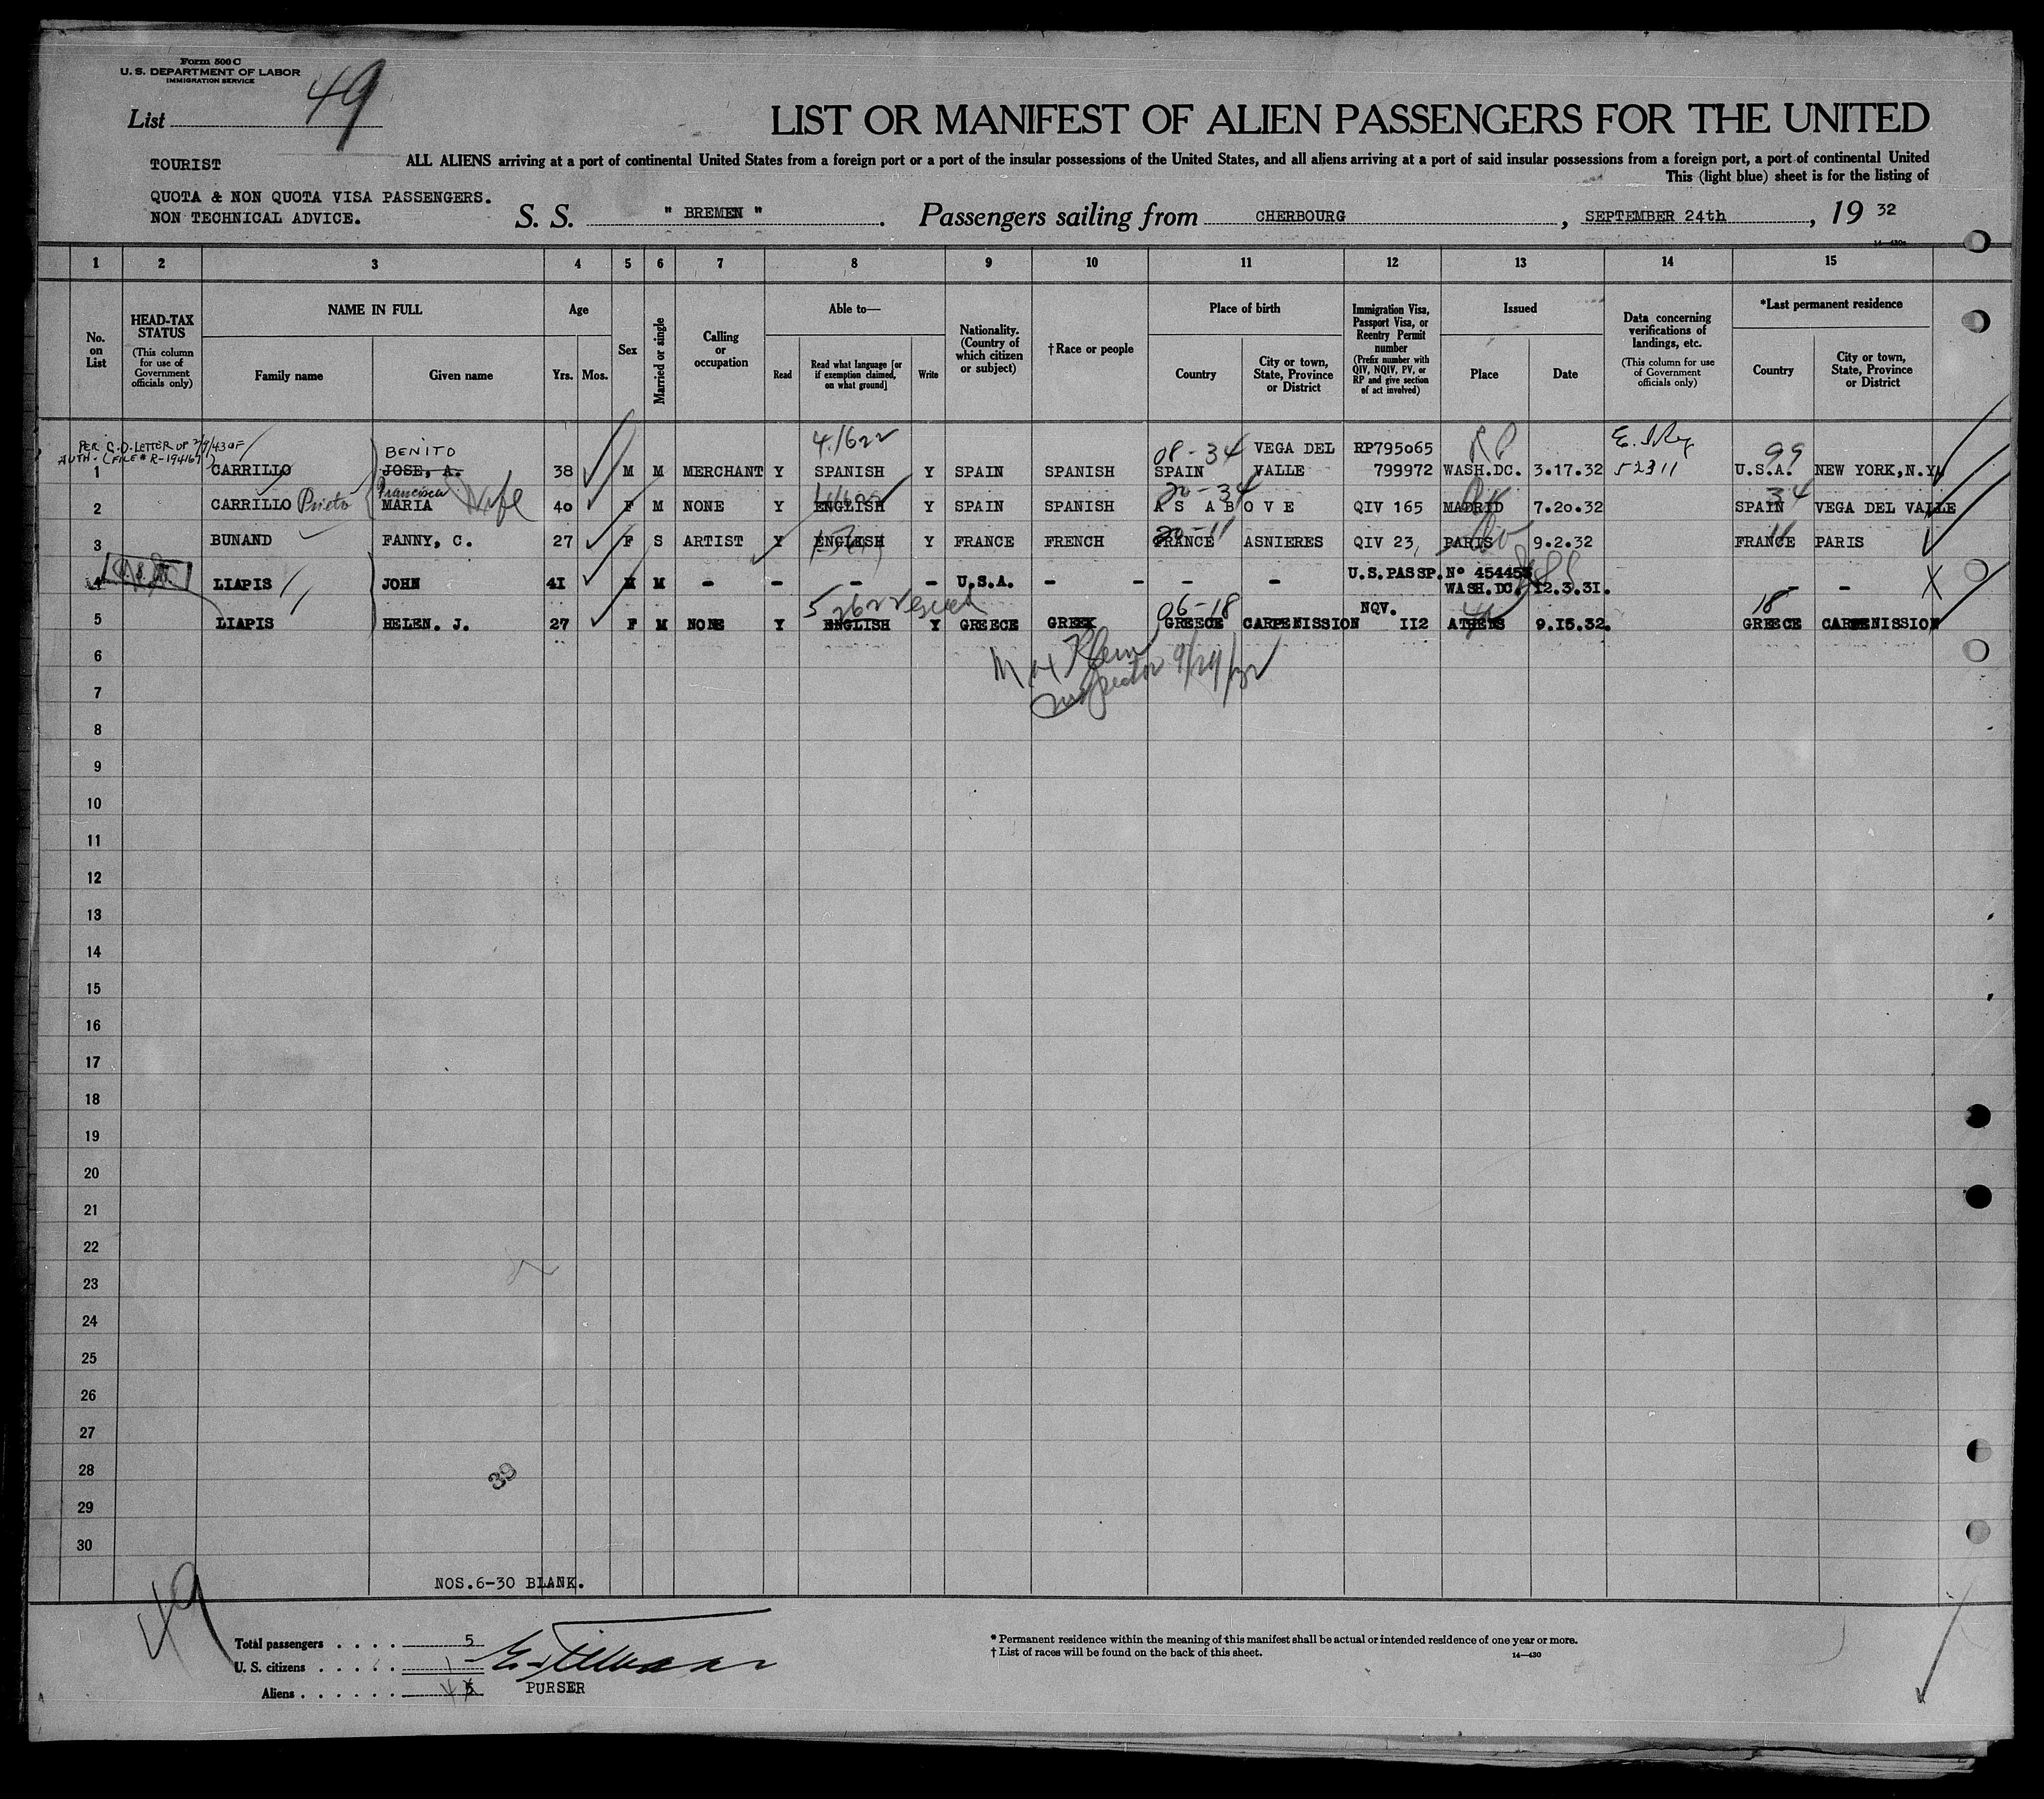 Form 500 C
U. S. DEPARTMENT OF LABOR
IMMIGRATION SERVICE
List 49
LIST OR MANIFEST OF ALIEN PASSENGERS FOR THE UNITED
TOURIST
ALL ALIENS arriving at a port of continental United States from a foreign port or a port of the insular possessions of the United States, and all aliens arriving at a port of said insular possessions from a foreign port, a port of continental United
This (light blue) sheet is for the listing of
QUOTA & NON QUOTA VISA PASSENGERS.
NON TECHNICAL ADVICE.
S. S. " BREMEN ". Passengers sailing from CHERBOURG, SEPTEMBER 24th, 19 32
14—430
1 2 3 4 5 6 7 8 9 10 11 12 13 14 15
No. on List
HEAD-TAX STATUS
(This column for use of Government officials only)
NAME IN FULL
Family name
Given name
Age
Yrs. Mos.
Sex
Married or single
Calling or occupation
Able to—
Read
Read what language [or if exemption claimed, on what ground]
Write
Nationality. (Country of which citizen or subject)
†Race or people
Place of birth
Country
City or town, State, Province or District
Immigration Visa, Passport Visa, or Reentry Permit number
(Prefix number with QIV, NQIV, PV, or RP and give section of act involved)
Issued
Place
Date
Data concerning verifications of landings, etc.
(This column for use of Government officials only)
*Last permanent residence
Country
City or town, State, Province or District
PER C.O. LETTER OF 2/9/43 OF
AUTH. (FILE # R-194167)
BENITO 4.1622 08-34 VEGA DEL RP795065 RP 99
1 CARRILLO JOSE, A. 38 M M MERCHANT Y SPANISH Y SPAIN SPANISH SPAIN VALLE 799972 WASH.DC. 3.17.32 52311 U.S.A. NEW YORK,N.Y.
Francisca 20-34 34
2 CARRILLO Prieto MARIA Wife 40 F M NONE Y ENGLISH Y SPAIN SPANISH AS ABOVE QIV 165 MADRID 7.20.32 SPAIN VEGA DEL VALLE
20-11 11
3 BUNAND FANNY, C. 27 F S ARTIST Y ENGLISH Y FRANCE FRENCH FRANCE ASNIERES QIV 23, PARIS 9.2.32 FRANCE PARIS
U.S.PASSP. Nº 45445
4 LIAPIS JOHN 41 M M - - - - U.S.A. - - - - WASH.DC. 12.3.31. - - X
5 2622 06-18 NQV. 18
5 LIAPIS HELEN. J. 27 F M NONE Y ENGLISH Y GREECE GREEK GREECE CARPENISSION 112 ATHENS 9.15.32. GREECE CARPENISSION
Klein
Inspector 9/29/32
6
7
8
9
10
11
12
13
14
15
16
17
18
19
20
21
22
23
24
25
26
27
28
39
29
30
NOS.6-30 BLANK.
49
Total passengers . . . . 5
U. S. citizens . . . . . 1
Aliens . . . . . . 4 5
PURSER
* Permanent residence within the meaning of this manifest shall be actual or intended residence of one year or more.
† List of races will be found on the back of this sheet.
14—430